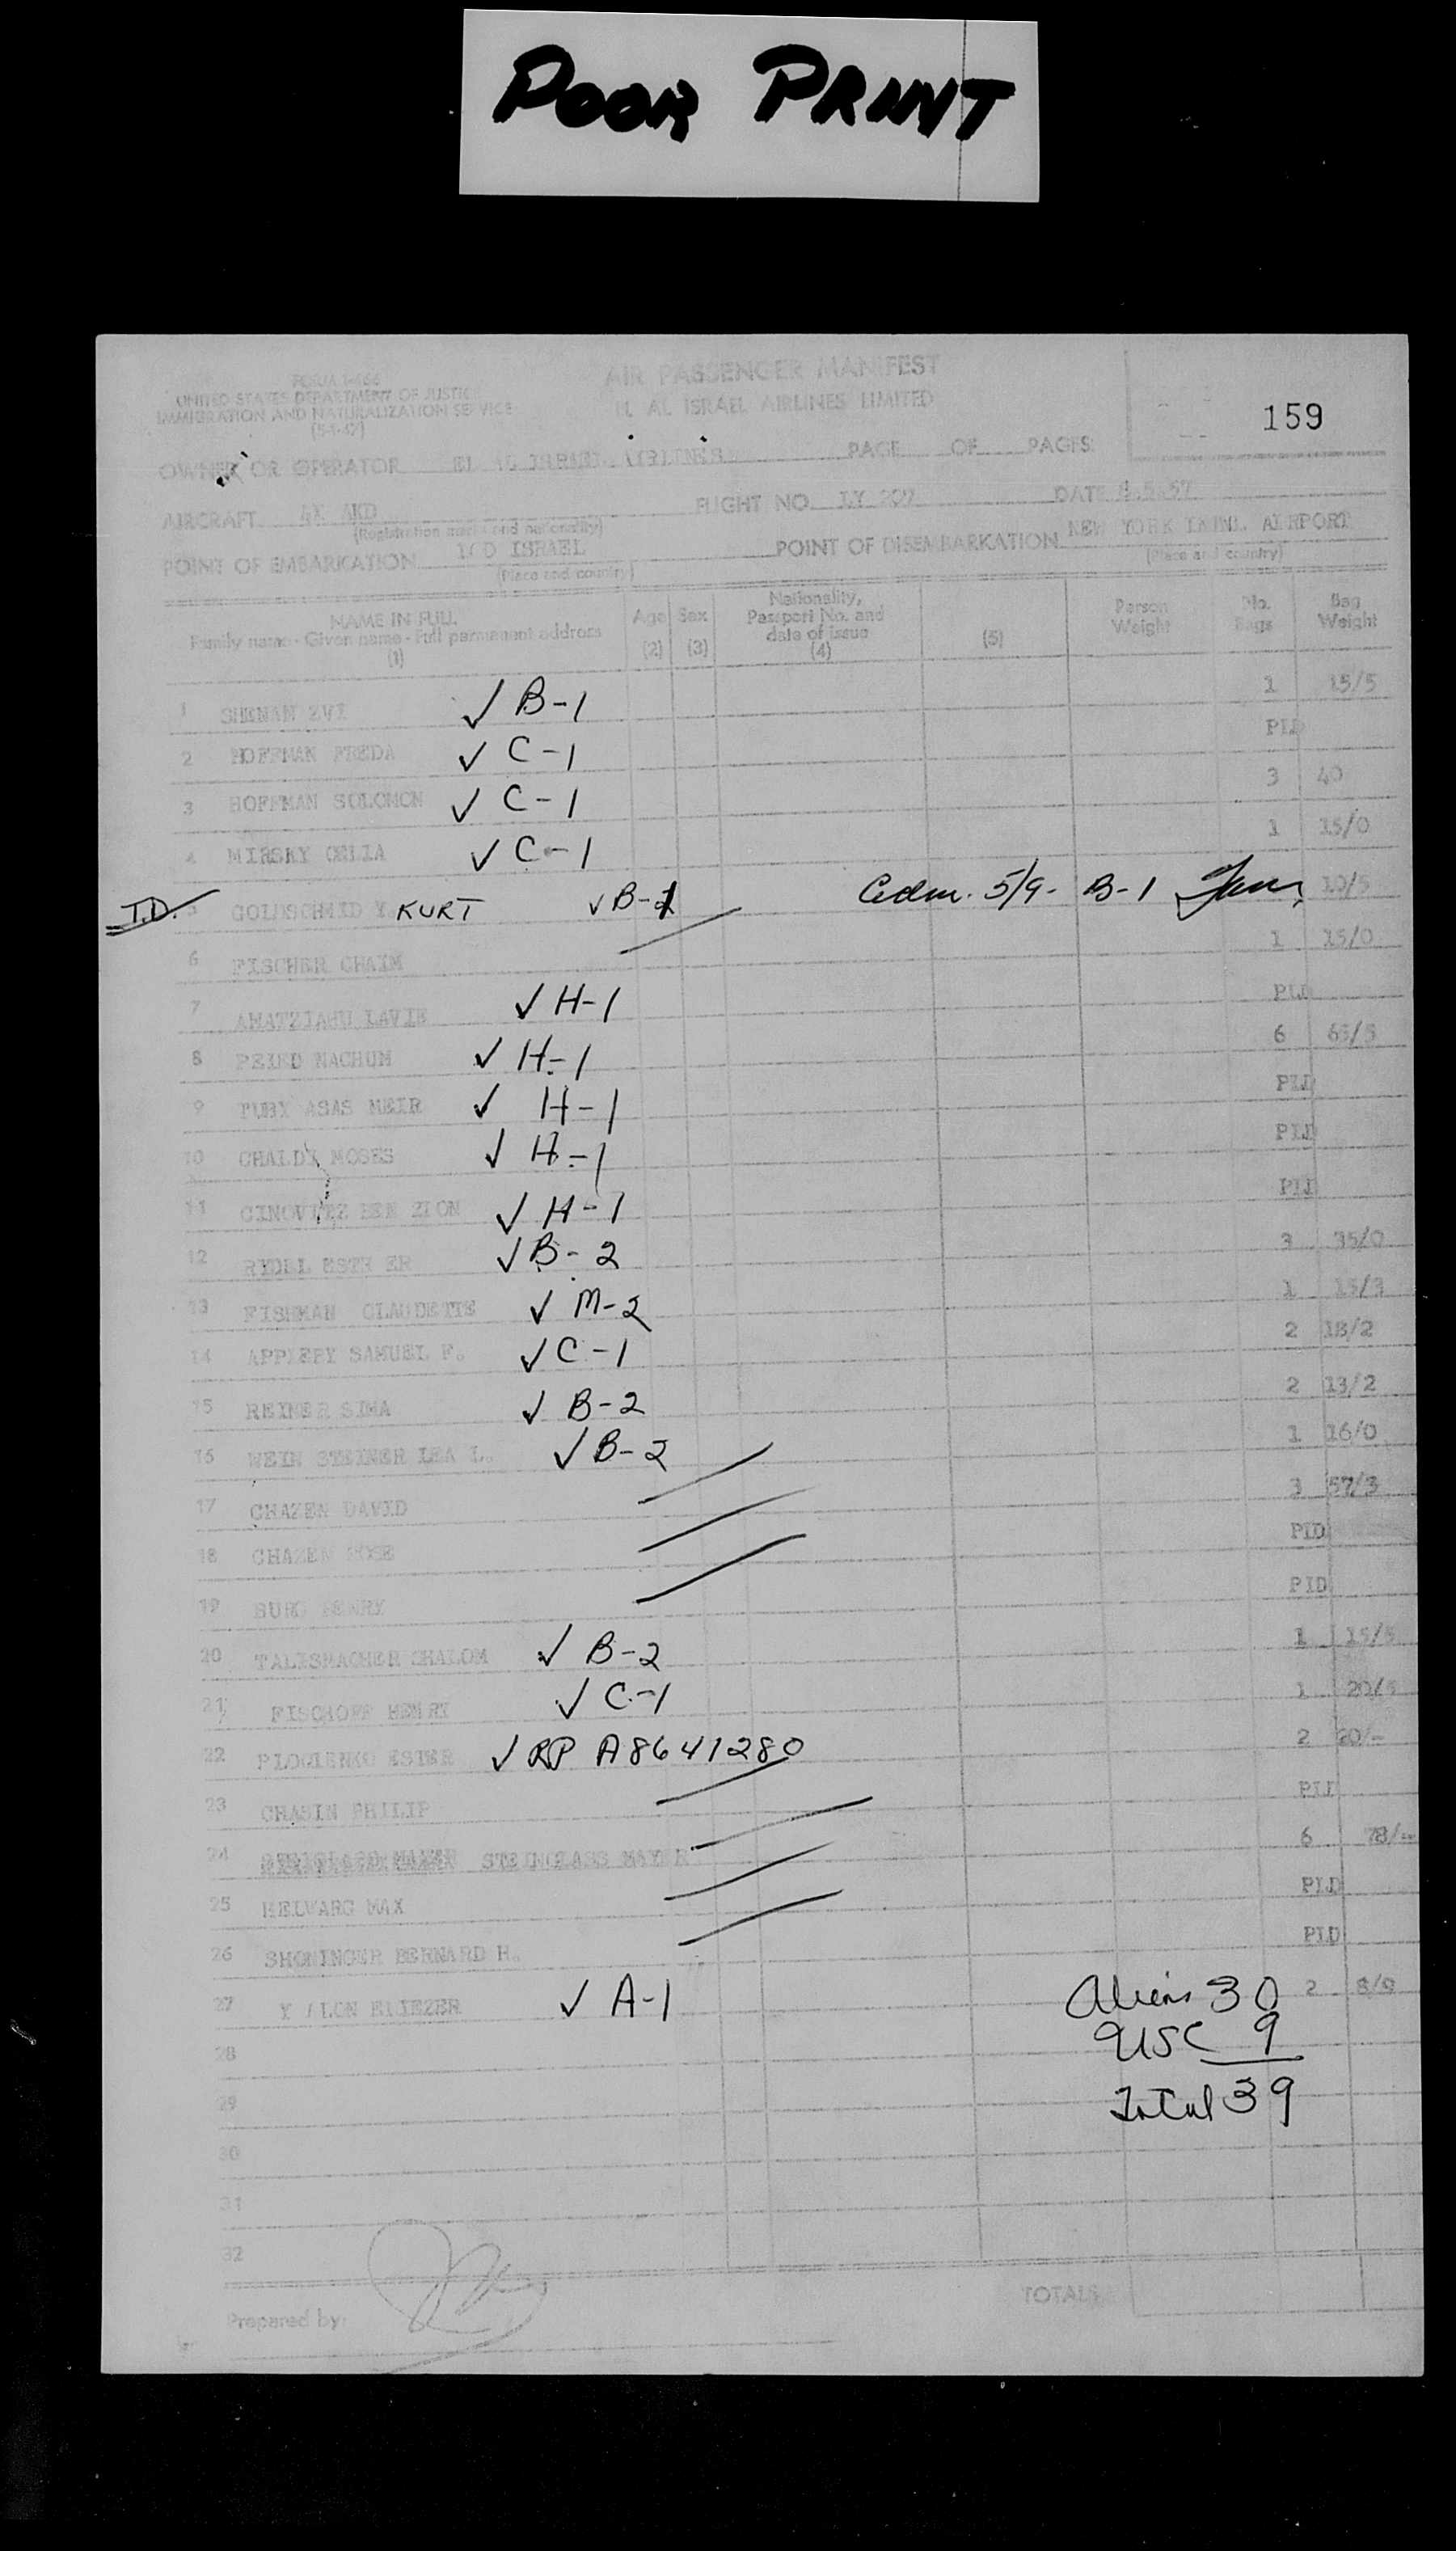 POOR PRINT
FORM I-466
UNITED STATES DEPARTMENT OF JUSTICE
IMMIGRATION AND NATURALIZATION SERVICE
AIR PASSENGER MANIFEST
EL AL ISRAEL AIRLINES LIMITED
159
OWNER OR OPERATOR EL AL ISRAEL AIRLINES PAGE OF PAGES
AIRCRAFT 4X AKD FLIGHT NO. LY 207 DATE 8.5.57
(Registration mark and nationality)
POINT OF EMBARKATION LOD ISRAEL POINT OF DISEMBARKATION NEW YORK INTNL. AIRPORT
(Place and country) (Place and country)
NAME IN FULL Family name - Given name - Full permanent address (1) Age (2) Sex (3) Nationality, Passport No. and date of issue (4) (5) Person Weight No. Bags Bag Weight
1 SHENAN ZVI ✓ B-1 1 15/5
2 HOFFMAN FREDA ✓ C-1 PLD
3 HOFFMAN SOLOMON ✓ C-1 3 40
4 MIRSKY CELIA ✓ C-1 1 15/0
T.D. 5 GOLDSCHMID Y. KURT ✓ B-1 Adm. 5/9- B-1 10/5
6 FISCHER CHAIM 1 15/0
7 AMATZIAHU LAVIE ✓ H-1 PLD
8 FRIED NACHUM ✓ H-1 6 65/5
9 TUBY ASAS MEIR ✓ H-1 PLD
10 CHALDY MOSES ✓ H-1 PLD
11 GINOVITZ BEN ZION ✓ H-1 PLD
12 RYDEL ESTHER ✓ B-2 3 35/0
13 FISHMAN CLAUDETTE ✓ M-2 1 15/3
14 APPLEBY SAMUEL F. ✓ C-1 2 18/2
15 REINER SIMA ✓ B-2 2 13/2
16 WEIN STEINER LEA L. ✓ B-2 1 16/0
17 CHAZEN DAVID 3 57/3
18 CHAZEN ROSE PLD
19 BURG HENRY PLD
20 TALISMACHER SHALOM ✓ B-2 1 15/5
21 FISCHOFF HENRY ✓ C-1 1 20/5
22 PLOCIENKO ESTER ✓ RP A8641280 2 20/-
23 CHASIN PHILIP PLD
24 STEINGLASS MAYER 6 78/-
25 HELWARG MAX PLD
26 SHONINGER BERNARD H. PLD
27 Y ALON ELIEZER ✓ A-1 2 8/0
Aliens 30
28
USC 9
29
Total 39
30
31
32
TOTALS
Prepared by: